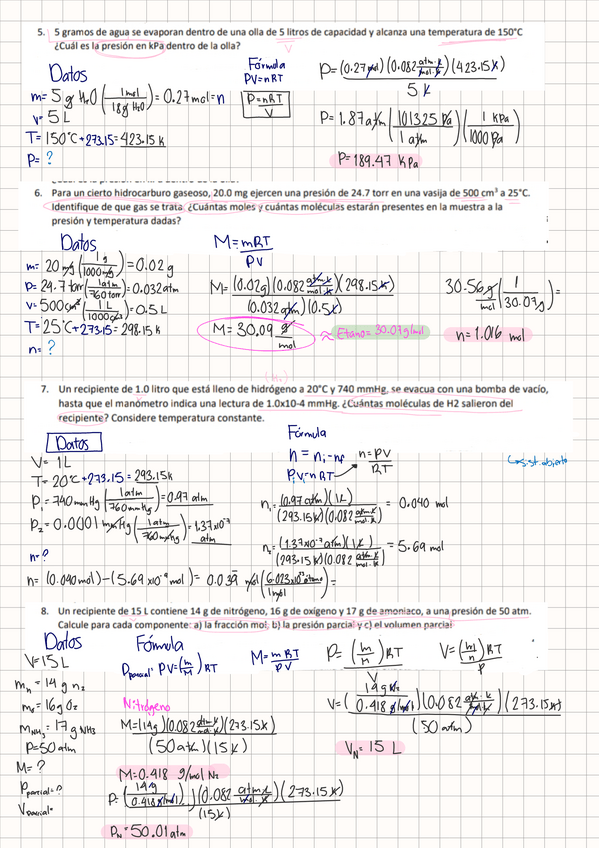 5. 5 gramos de agua se evaporan dentro de una olla de 5 litros de capacidad y alcanza una temperatura de 150°C
¿Cuál es la presión en kPa dentro de la olla?
Datos
m= 5 g H₂O (1mol / 18g H₂O) = 0.27 mol = n
V= 5 L
T= 150°C +273.15= 423.15 K
P= ?
Fórmula
PV=nRT
P=nRT / V
P= (0.27 mol)(0.082 atm·L / mol·K)(423.15K) / 5 L
P= 1.87 atm (101325 Pa / 1 atm)(1 KPa / 1000 Pa)
P= 189.47 KPa
6. Para un cierto hidrocarburo gaseoso, 20.0 mg ejercen una presión de 24.7 torr en una vasija de 500 cm³ a 25°C.
Identifique de que gas se trata. ¿Cuántas moles y cuántas moléculas estarán presentes en la muestra a la
presión y temperatura dadas?
Datos
m= 20 mg (1g / 1000mg) = 0.02 g
P= 24.7 torr (1atm / 760 torr) = 0.032 atm
V= 500 cm³ (1L / 1000 cm³) = 0.5 L
T= 25°C +273.15= 298.15 K
n= ?
M= mRT / PV
M= (0.02g)(0.082 atm·L / mol·K)(298.15K) / (0.032 atm)(0.5L)
M= 30.09 g / mol
≈ Etano= 30.07 g/mol
30.56 g / mol (1 / 30.07g) =
n= 1.016 mol
7. Un recipiente de 1.0 litro que está lleno de hidrógeno a 20°C y 740 mmHg, se evacua con una bomba de vacío,
hasta que el manómetro indica una lectura de 1.0x10-4 mmHg. ¿Cuántas moléculas de H2 salieron del
recipiente? Considere temperatura constante.
Datos
V= 1L
T= 20°C +273.15= 293.15K
P₁= 740 mmHg (1atm / 760 mmHg) = 0.97 atm
P₂= 0.0001 mmHg (1atm / 760 mmHg) = 1.37x10⁻⁷ atm
n= ?
Fórmula
n = nᵢ-nf
PᵢVᵢ=nRT
n=PV / RT
n₁= (0.97 atm)(1L) / (293.15K)(0.082 atm·L / mol·K) = 0.040 mol
n₂= (1.37x10⁻⁷ atm)(1L) / (293.15K)(0.082 atm·L / mol·K) = 5.69 mol
n= (0.040mol)-(5.69 x10⁻⁹ mol) = 0.039 mol (6.023x10²³ / 1mol) =
8. Un recipiente de 15 L contiene 14 g de nitrógeno, 16 g de oxígeno y 17 g de amoniaco, a una presión de 50 atm.
Calcule para cada componente: a) la fracción mol; b) la presión parcial y c) el volumen parcial
Datos
V=15 L
mₙ = 14 g n₂
m₀= 16g O₂
mNH₃ = 17g NH₃
P=50 atm
M= ?
Pparcial= ?
Vparcial=
Fórmula
Pparcial: PV=(m/M) RT
M= mRT / PV
P= (m/n) RT / V
V= (m/n) RT / P
Nitrógeno
M= (14g)(0.082 atm·L / mol·K)(273.15K) / (50atm)(15L)
M=0.418 g/mol N₂
P= (14g / 0.418 g/mol)(0.082 atm·L / mol·K)(273.15K) / (15L)
PN= 50.01 atm
V= (14g N₂ / 0.418 g/mol)(0.082 atm·L / mol·K)(273.15K) / (50 atm)
VN= 15 L